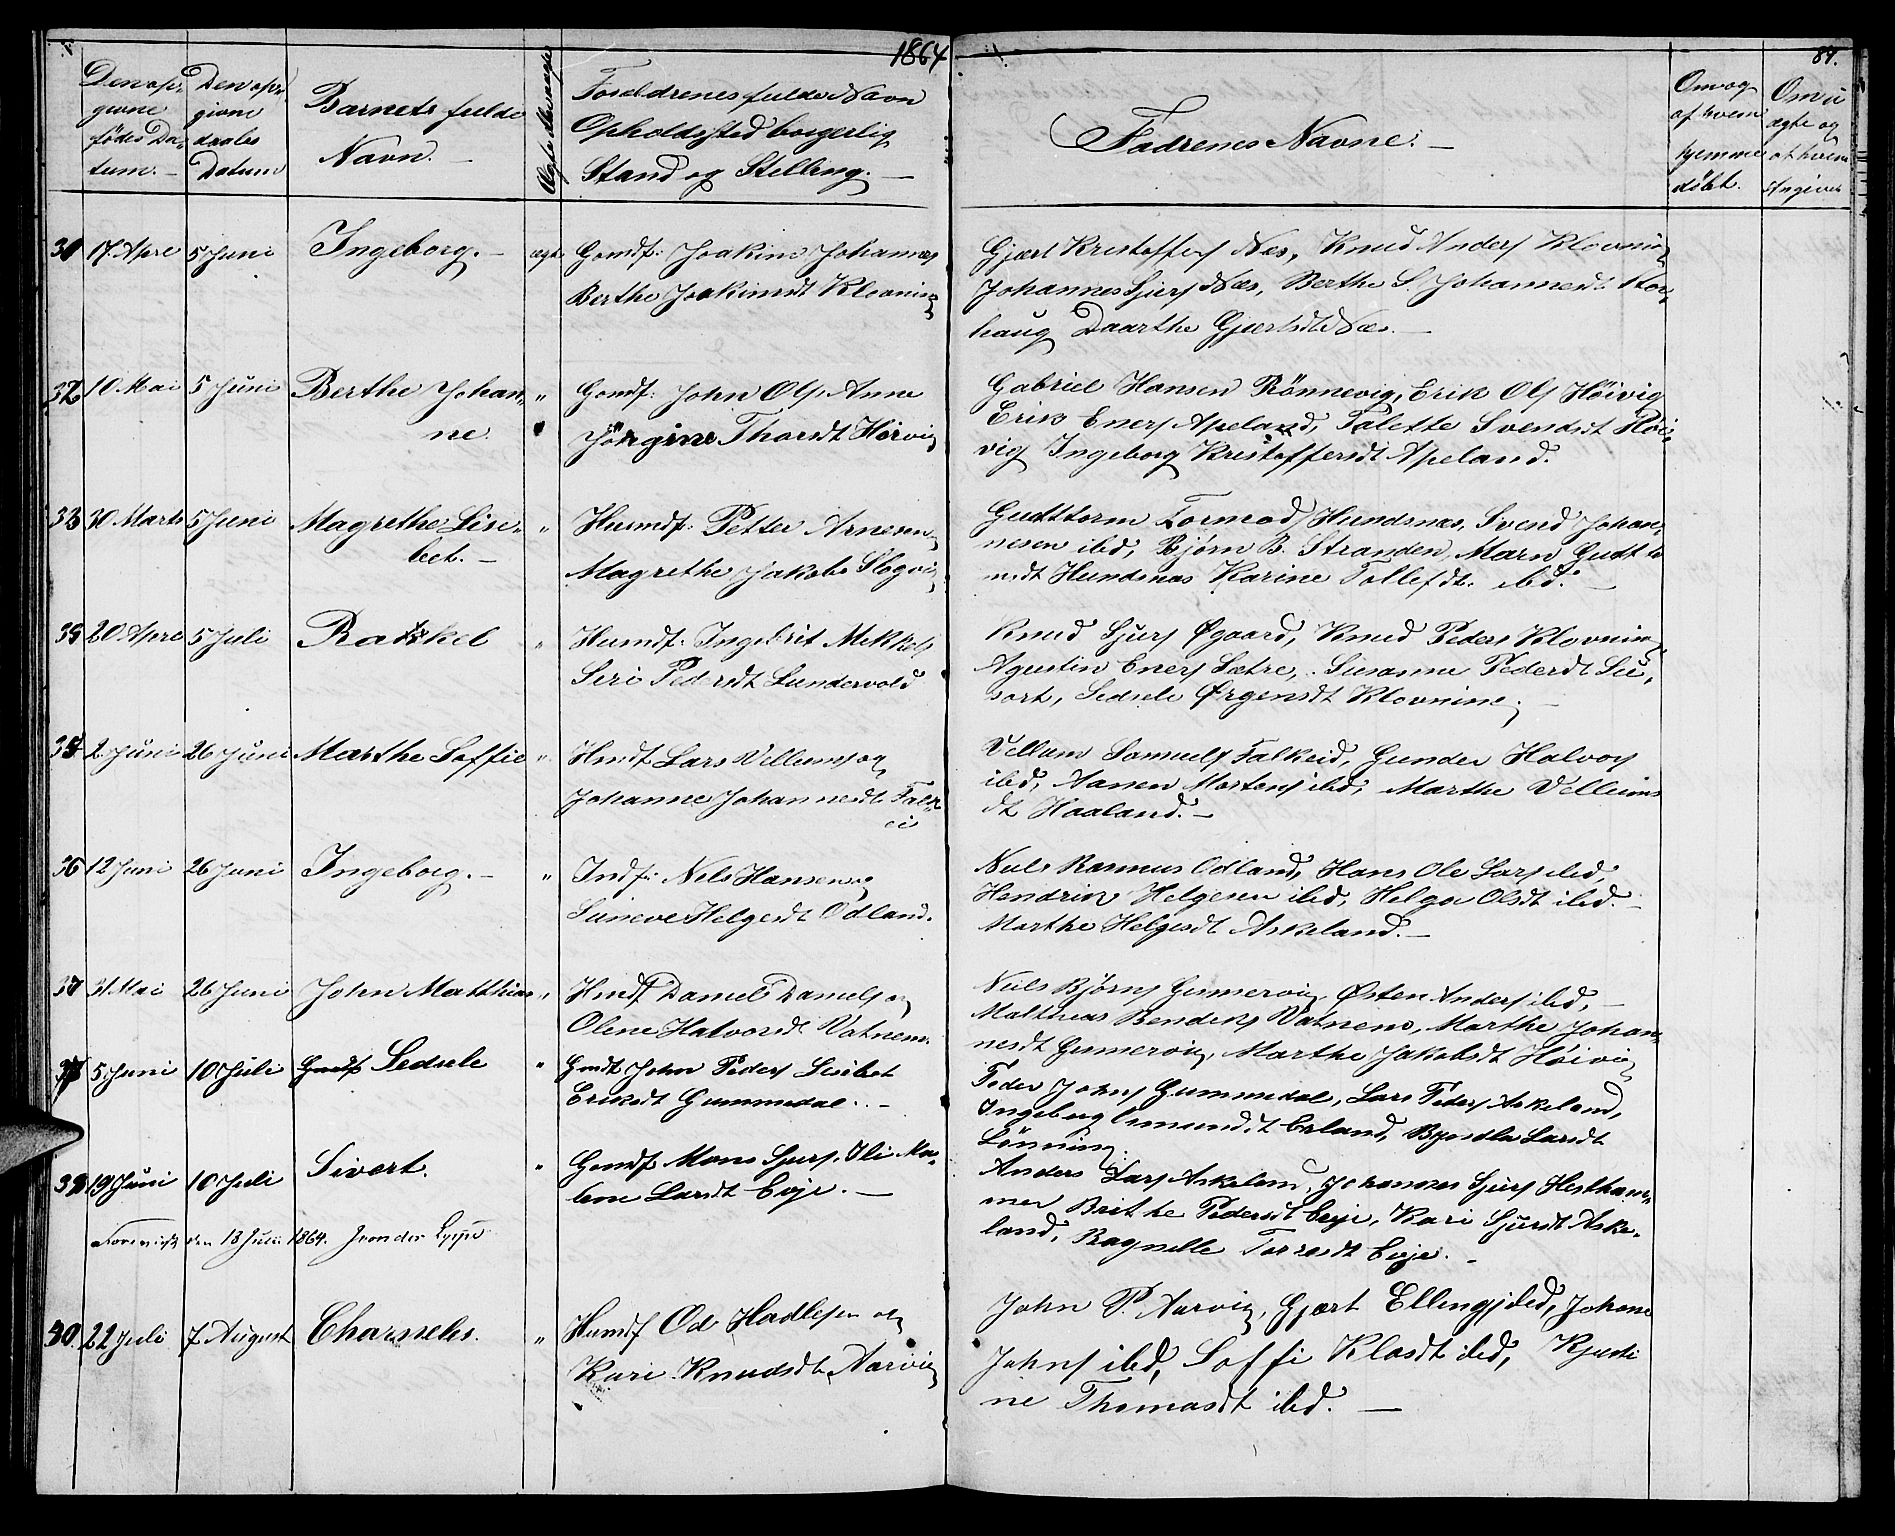 1864
84.
Den opgivne fødes Datum.
Den opgivne daabs Datum
Barnets fulde Navn.
Ægte eller uægte
Forældrenes fulde Navn Opholdssted borgerlig Stand og Stilling.
Fadrenes Navne.
Om og af hvem hjemme døbt.
Om uægte og af hvem Angivet
31 17 Apre 5 Juni Ingeborg. ægte Gomdf: Joakim Johannes
Berthe Joakimsdt Kloaning
Gjært Kristoffers Næs, Knud Anders Klovning
Johannes Sjurs Næs, Berthe S. Johannesdt Stor-
haug Daarthe Gjertsdt Næs.
32 10 Mai 5 Juni Berthe Johan- " Gomdf: John Ols. Anne
ne. Jørgine Thorsdt Høivig
Gabriel Hansen Rönnevig, Erik Ols Höivig
Erik Eners Apeland, Talette Svendsdt Høi-
vig Ingeborg Kristoffersdt Apeland.
33 30 Marts 5 Juni Magrethe Lise- " Husmdf: Petter Arnesen
bet. Magrethe Jakobs Slogvig
Gudttorm Tormods Hundsnæs, Svend Johan-
nesen ibd, Bjørn B. Stranden, Marn Gudtto
msdt Hundsnæs Karine Tollefdt. ibd.
34 20 Apre 5 Juli Rakkel " Husmdf: Ingebrit Mikkels
Siri Pedersdt Lundervold
Knud Sjurs Øgaard, Knud Peders Klovning
Agustin Eners Sætre, Susanne Pedersdt Su-
sort, Sedsele Ørgensdt Klovning
35 2 Juni 26 Juni Marthe Soffie " Hmdf Lars Vellums og
Johanne Johannesdt Falk
ei
Vellum Samuels Falkeid, Gunder Halvors
ibd, Aanen Mortens ibd, Marthe Vellums
dt Haaland.
36 12 Juni 26 Juni Ingeborg. " Indf: Nels Hansen og
Suneve Helgesdt Odland.
Neels Rasmus Odland, Hans Ole Lars ibd,
Hendrik Helgesen ibd, Helga Olsdt ibd.
Marthe Helgesdt Askeland.
37 31 Mai 26 Juni John Matthias " Hmdf Daniel Daniels og
Olene Halvorsdt Vatnem.
Neels Bjørns Gunnervig, Østen Anders ibd,
Matthias Bendiks Vatnem, Marthe Johan-
nesdt Gunnervig, Marthe Jakobsdt Høivig
5 Juni 10 Juli Sedsele " Gmdt John Peders Lisibet
Eriksdt Gummedal.
Peder Johns Gummedal, Lars Peders Askeland,
Ingeborg Osmundsdt Erland, Byndla Larsdt
Lönning
39 19 Juni 10 Juli Sivert. " Gmdf Mons Sjurs, Ili Ma-
lene Larsdt Eeje.
Anders Lars Askeland, Johannes Sjurs Hestham-
mer Brithe Pedersdt Eeje, Kari Sjursdt Aske-
land, Ragnelle Torresdt Eeje.
den 13 Juli 1864.
30. 22 Juli 7 August Charnels. " Husmdf Od Hadlesen og
Kari Knudsdt Aarvig
John P. Aarvig, Gjært Ellings ibd, Johane
Johns ibd, Soffi Klasdt ibd, Kjerste
ne Thomasdt ibd.